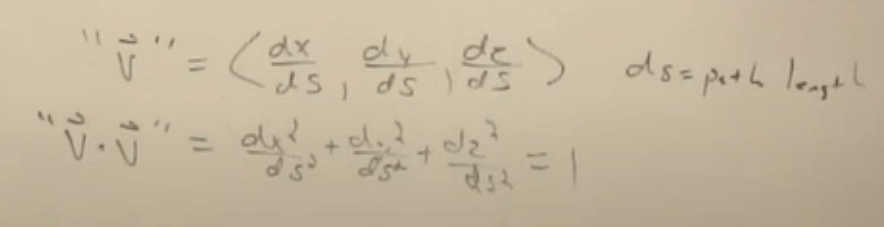 "v⃗" = ⟨dx/ds, dy/ds, dz/ds⟩ ds = path length
"v⃗ · v⃗" = dx²/ds² + dy²/ds² + dz²/ds² = 1